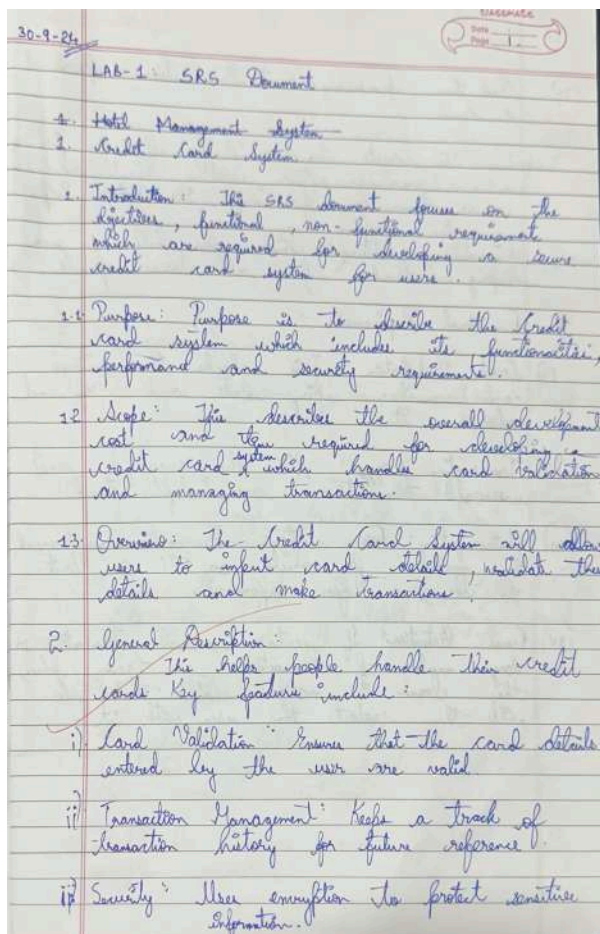 classmate
Date
Page 1.
30-9-24
LAB-1: SRS Document
1. Hotel Management System
1. Credit Card System
1. Introduction: This SRS document focuses on the
objectives, functional, non-functional requirements
which are required for developing a secure
credit card system for users.
1.1 Purpose: Purpose is to describe the Credit
card system which includes its functionalities,
performance and security requirements.
1.2 Scope: This describes the overall development
cost and time required for developing a
credit card system which handles card validation
and managing transactions.
1.3 Overview: The Credit Card System will allow
users to input card details, validate the
details and make transactions.
2. General Description:
This helps people handle their credit
cards Key feature include:
i) Card Validation: Ensures that the card details
entered by the user are valid.
ii) Transaction Management: Keeps a track of
transaction history for future reference.
iii) Security: Uses encryption to protect sensitive
information.